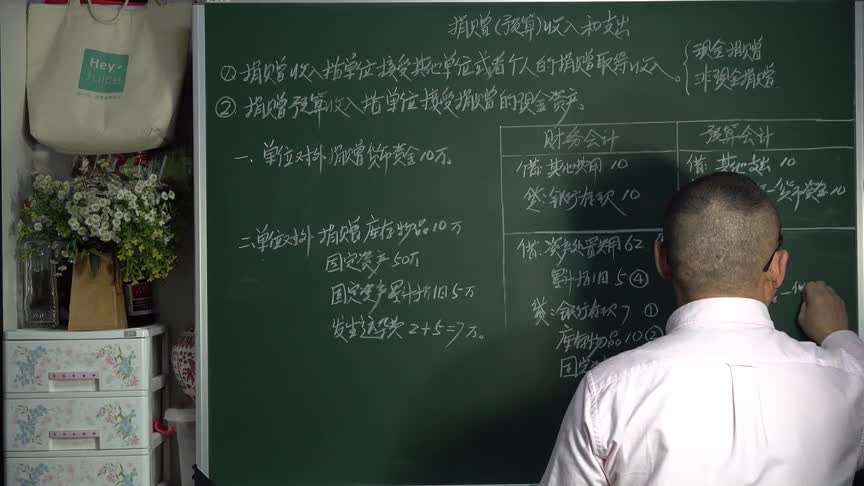 Hey
JUICE
捐赠(预算)收入和支出
①捐赠收入指单位接受其他单位或者个人的捐赠取得收入。
现金捐赠
非现金捐赠
②捐赠预算收入指单位接受捐赠的现金资产。
一、单位对外捐赠货币资金10万。
二单位对外捐赠库存物品10万
固定资产50万
固定资产累计折旧5万
发生运费2+5=7万。
财务会计
借:其他费用 10
贷:银行存款 10
借:资产处置费用62
累计折旧5④
贷:银行存款7 ①
库存物品10②
固定
预算会计
借:其他支出 10
一货币资金10